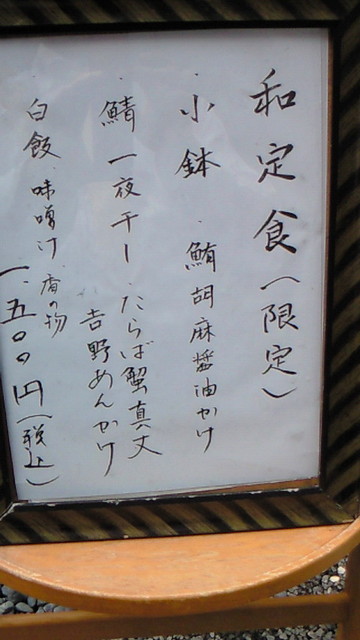 和定食(限定)
・小鉢 ・鮪胡麻醤油かけ
・鯖一夜干し ・たらば蟹真丈
吉野あんかけ
白飯 味噌汁 香の物
一、五〇〇円(税込)